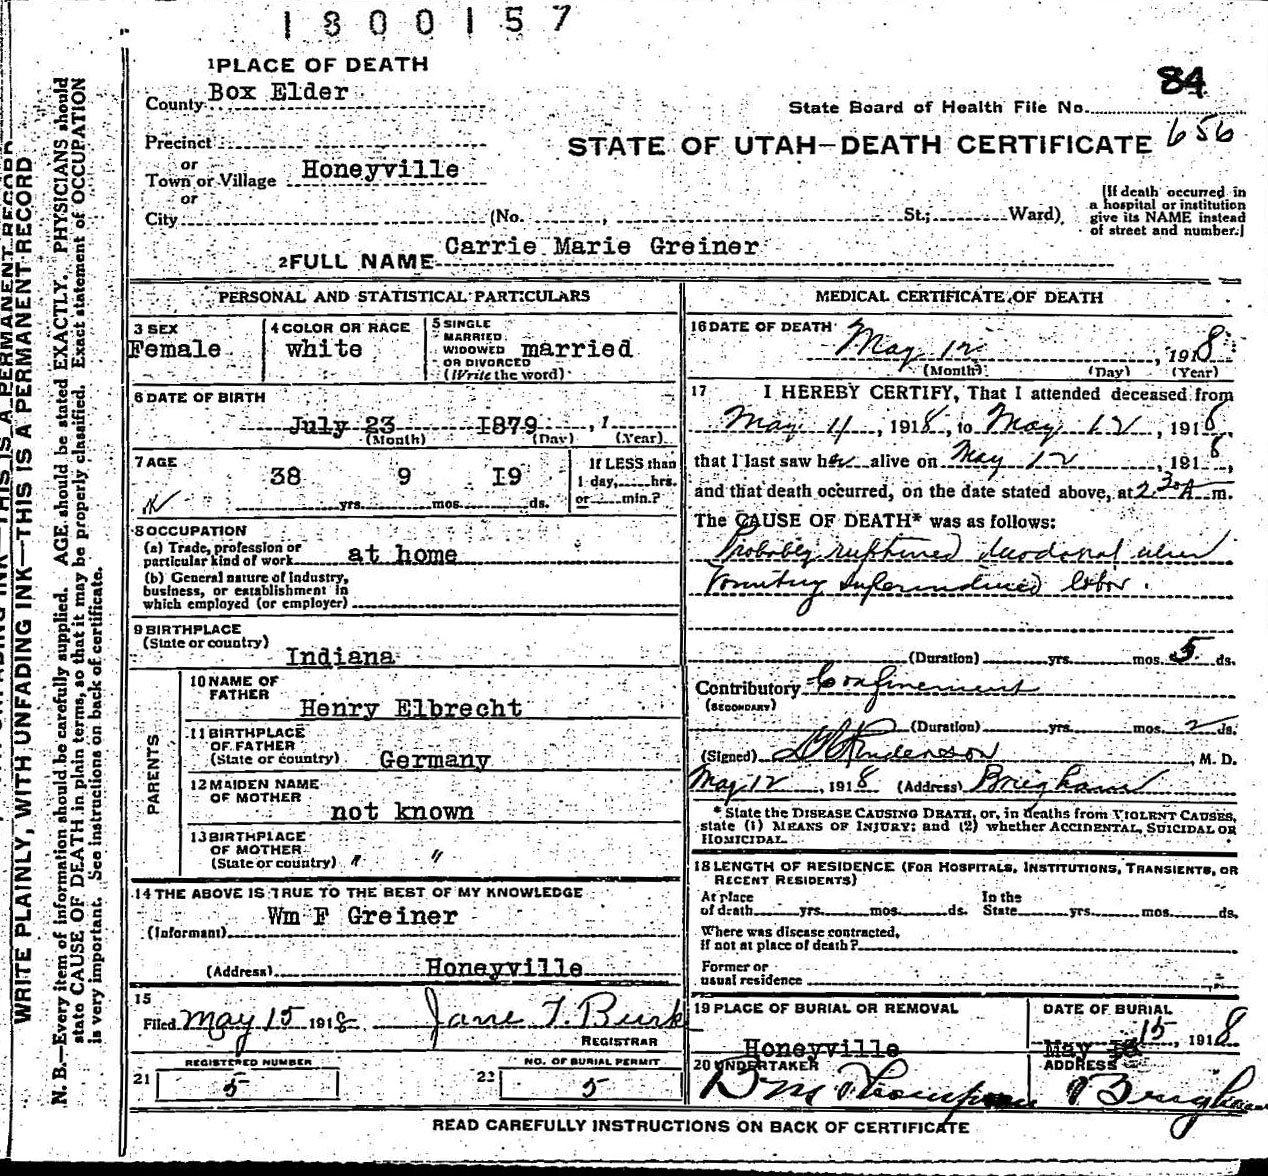 1800157
1 PLACE OF DEATH
84
County Box Elder
State Board of Health File No.
656
Precinct
STATE OF UTAH—DEATH CERTIFICATE
or
Town or Village Honeyville
or
City (No. , St.; Ward)
(If death occurred in
a hospital or institution
give its NAME instead
of street and number.)
2 FULL NAME Carrie Marie Greiner
PERSONAL AND STATISTICAL PARTICULARS
3 SEX
Female
4 COLOR OR RACE
white
5 SINGLE
MARRIED
WIDOWED
OR DIVORCED
(Write the word)
married
6 DATE OF BIRTH
July 23 1879 , 1
(Month) (Day) (Year)
7 AGE
38 9 19
yrs. mos. ds.
If LESS than
1 day, hrs.
or min.?
8 OCCUPATION
(a) Trade, profession or
particular kind of work at home
(b) General nature of Industry,
business, or establishment in
which employed (or employer)
9 BIRTHPLACE
(State or country)
Indiana
PARENTS
10 NAME OF
FATHER
Henry Elbrecht
11 BIRTHPLACE
OF FATHER
(State or country) Germany
12 MAIDEN NAME
OF MOTHER
not known
13 BIRTHPLACE
OF MOTHER
(State or country) " "
14 THE ABOVE IS TRUE TO THE BEST OF MY KNOWLEDGE
Wm F Greiner
(Informant)
(Address) Honeyville
15
Filed May 15 1918 Jane T. Burk
REGISTRAR
REGISTERED NUMBER
21 5
NO. OF BURIAL PERMIT
22 5
MEDICAL CERTIFICATE OF DEATH
16 DATE OF DEATH
May 12 , 1918
(Month) (Day) (Year)
17 I HEREBY CERTIFY, That I attended deceased from
May 11, 1918, to May 12, 1918
that I last saw her alive on May 12, 1918,
and that death occurred, on the date stated above, at 2.30 A m.
The CAUSE OF DEATH* was as follows:
Probably ruptured duodonal ulcer
Vomiting superinduced labor.
(Duration) yrs. mos. 5 ds.
Contributory Confinement
(SECONDARY)
(Duration) yrs. mos. 2 ds.
(Signed) Anderson, M. D.
May 12, 1918 (Address) Brigham
* State the DISEASE CAUSING DEATH, or, in deaths from VIOLENT CAUSES,
state (1) MEANS OF INJURY; and (2) whether ACCIDENTAL, SUICIDAL OR
HOMICIDAL.
18 LENGTH OF RESIDENCE (FOR HOSPITALS, INSTITUTIONS, TRANSIENTS, OR
RECENT RESIDENTS)
At place
of death yrs. mos. ds.
In the
State yrs. mos. ds.
Where was disease contracted,
if not at place of death?
Former or
usual residence
19 PLACE OF BURIAL OR REMOVAL
Honeyville
DATE OF BURIAL
May 15, 1918
20 UNDERTAKER
Thompson
ADDRESS
Brigham
READ CAREFULLY INSTRUCTIONS ON BACK OF CERTIFICATE
WRITE PLAINLY, WITH UNFADING INK—THIS IS A PERMANENT RECORD
N. B.—Every item of information should be carefully supplied. AGE should be stated EXACTLY. PHYSICIANS should
state CAUSE OF DEATH in plain terms, so that it may be properly classified. Exact statement of OCCUPATION
is very important. See instructions on back of certificate.